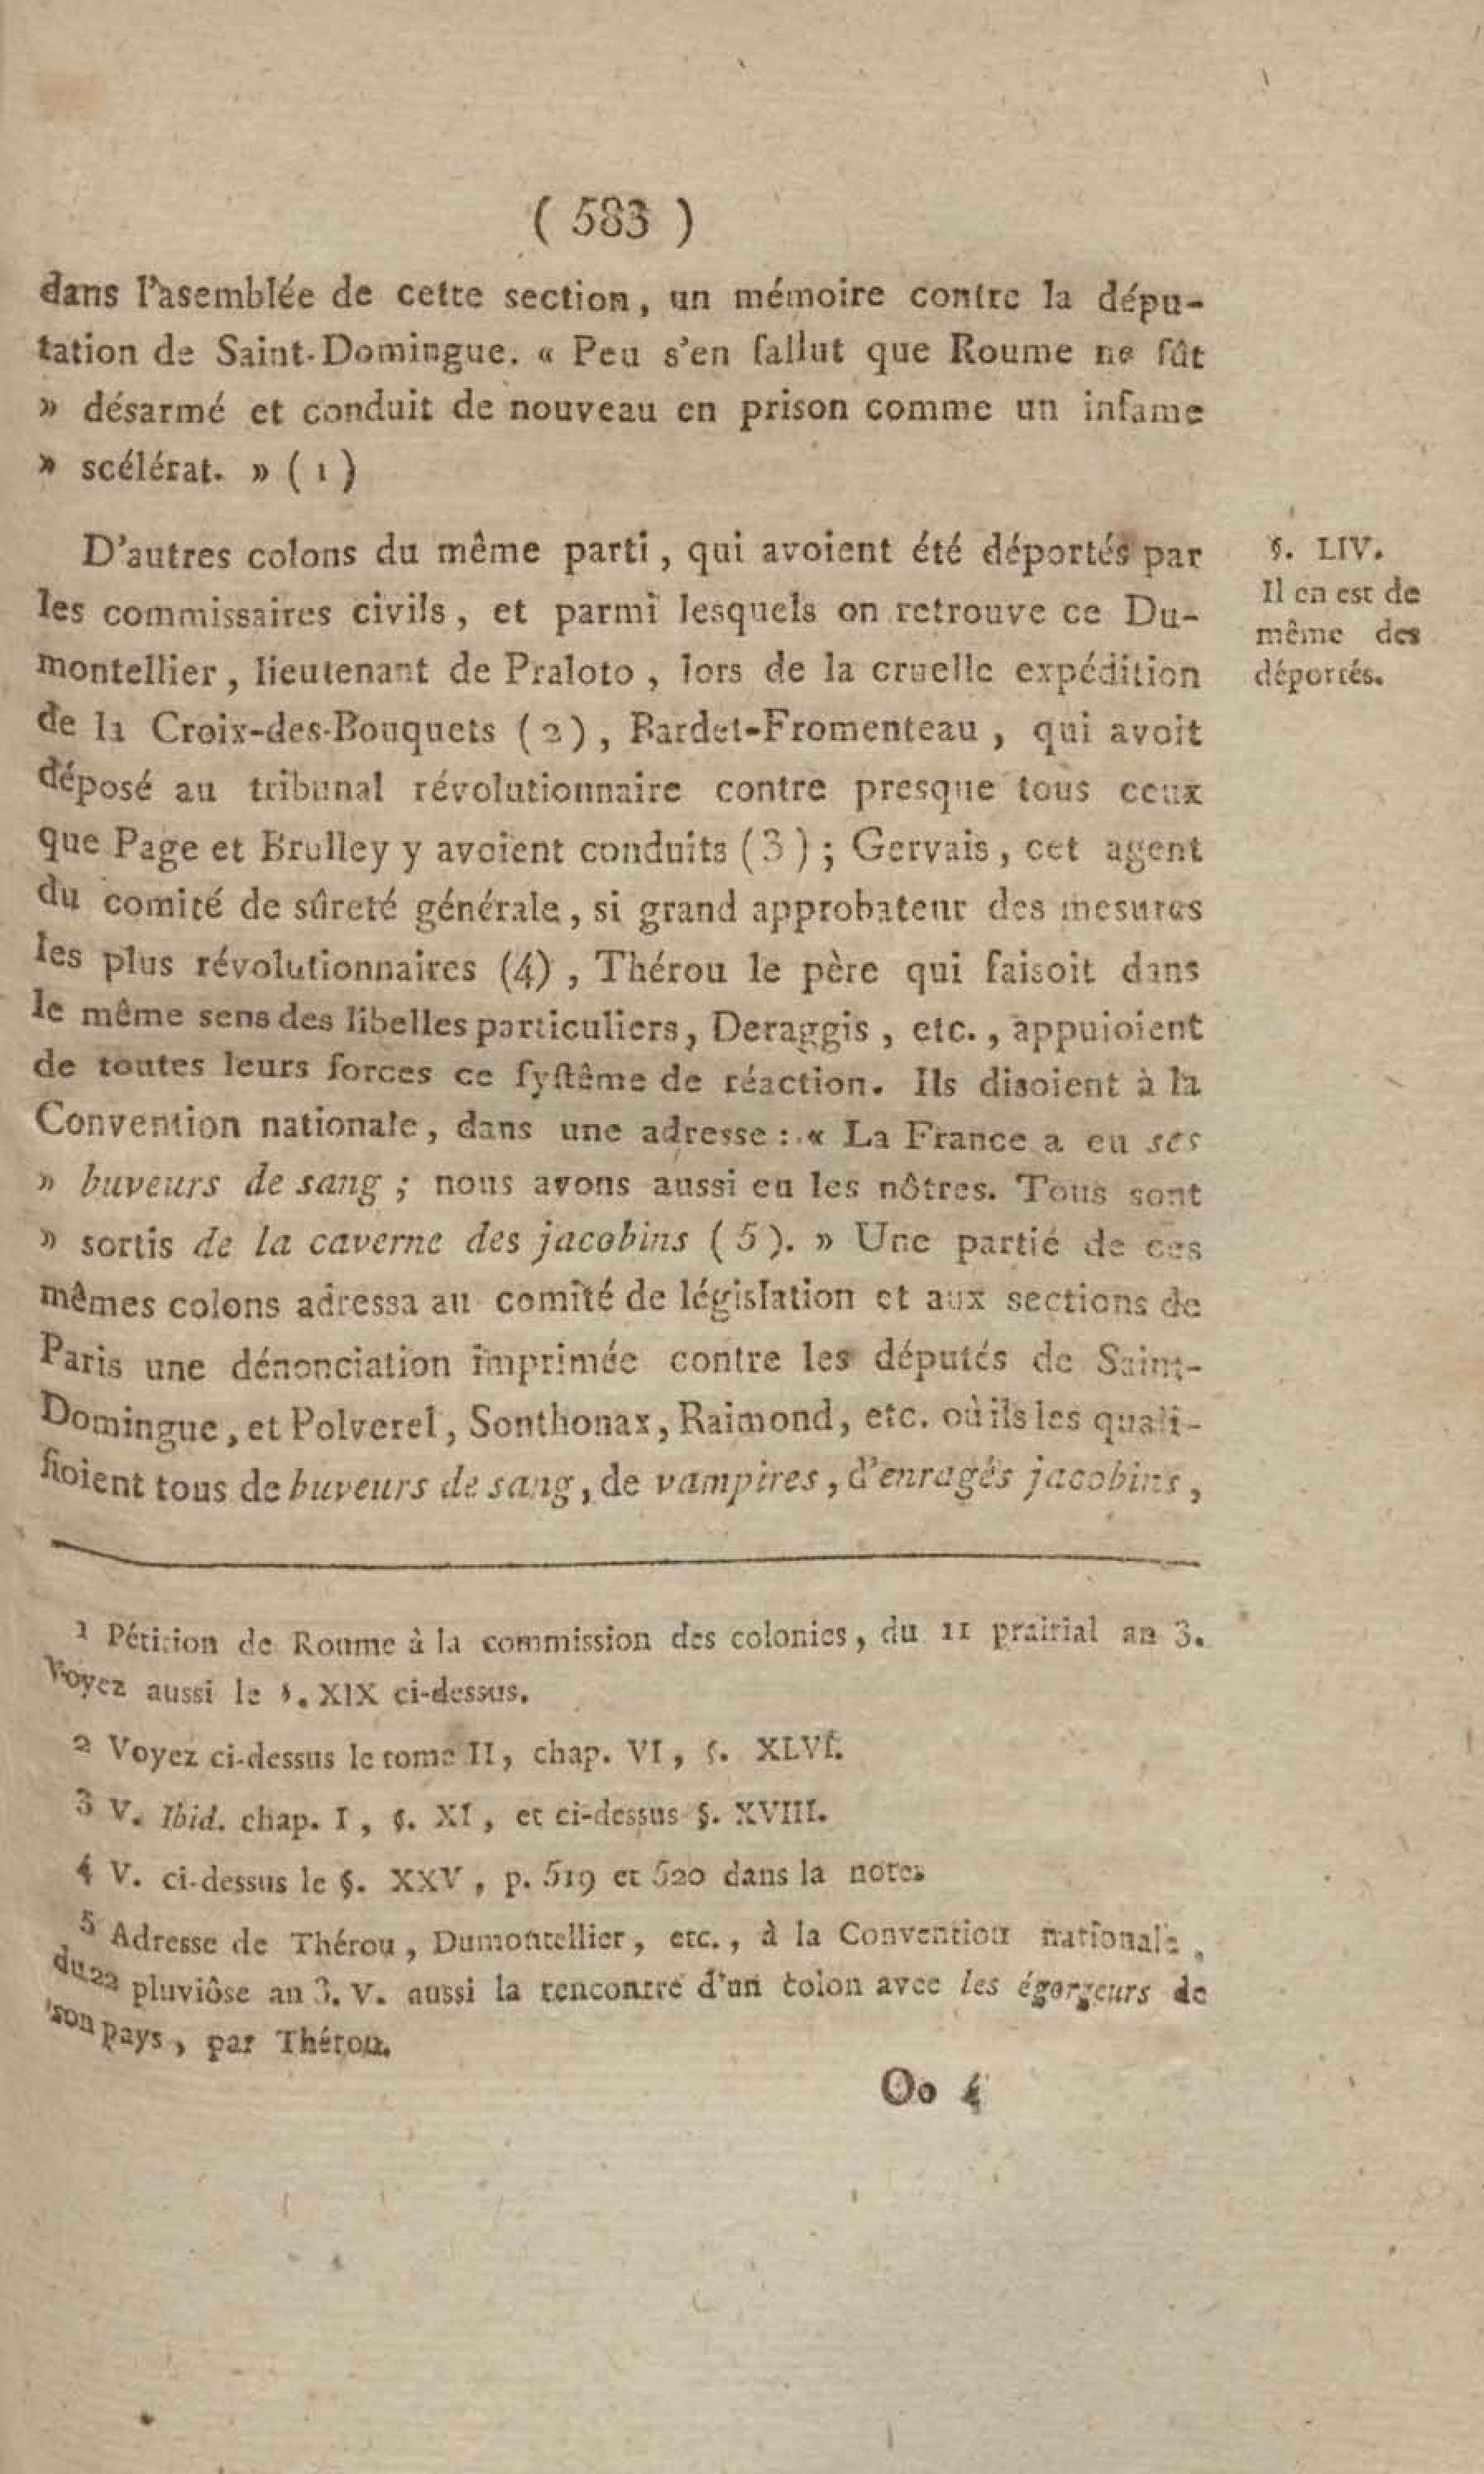 ( 583 )
dans l'asemblée de cette section, un mémoire contre la dépu-
tation de Saint-Domingue. « Peu s'en fallut que Roume ne fût
» désarmé et conduit de nouveau en prison comme un infame
» scélérat. » ( 1 )
D'autres colons du même parti, qui avoient été déportés par
les commissaires civils, et parmi lesquels on retrouve ce Du-
montellier, lieutenant de Praloto, lors de la cruelle expédition
de la Croix-des-Bouquets ( 2 ), Bardet-Fromenteau, qui avoit
déposé au tribunal révolutionnaire contre presque tous ceux
que Page et Brulley y avoient conduits ( 3 ) ; Gervais, cet agent
du comité de sûreté générale, si grand approbateur des mesures
les plus révolutionnaires (4), Thérou le père qui faisoit dans
le même sens des libelles particuliers, Deraggis, etc., appuioient
de toutes leurs forces ce fyftême de réaction. Ils disoient à la
Convention nationale, dans une adresse : « La France a eu ses
» buveurs de sang ; nous avons aussi eu les nôtres. Tous sont
» sortis de la caverne des jacobins ( 5 ). » Une partié de ces
mêmes colons adressa au comité de législation et aux sections de
Paris une dénonciation imprimée contre les députés de Saint-
Domingue, et Polverel, Sonthonax, Raimond, etc. où ils les quali-
fioient tous de buveurs de sang, de vampires, d'enragés jacobins,
§. LIV.
Il en est de
même des
déportés.
1 Pétition de Roume à la commission des colonies, du 11 prairial an 3.
Voyez aussi le §. XIX ci-dessus.
2 Voyez ci-dessus le tome II, chap. VI, §. XLVI.
3 V. Ibid. chap. I, §. XI, et ci-dessus §. XVIII.
4 V. ci-dessus le §. XXV, p. 519 et 520 dans la note.
5 Adresse de Thérou, Dumontellier, etc., à la Convention nationale,
du 22 pluviôse an 3. V. aussi la rencontre d'un colon avec les égorgeurs de
son pays, par Thérou.
Oo 4